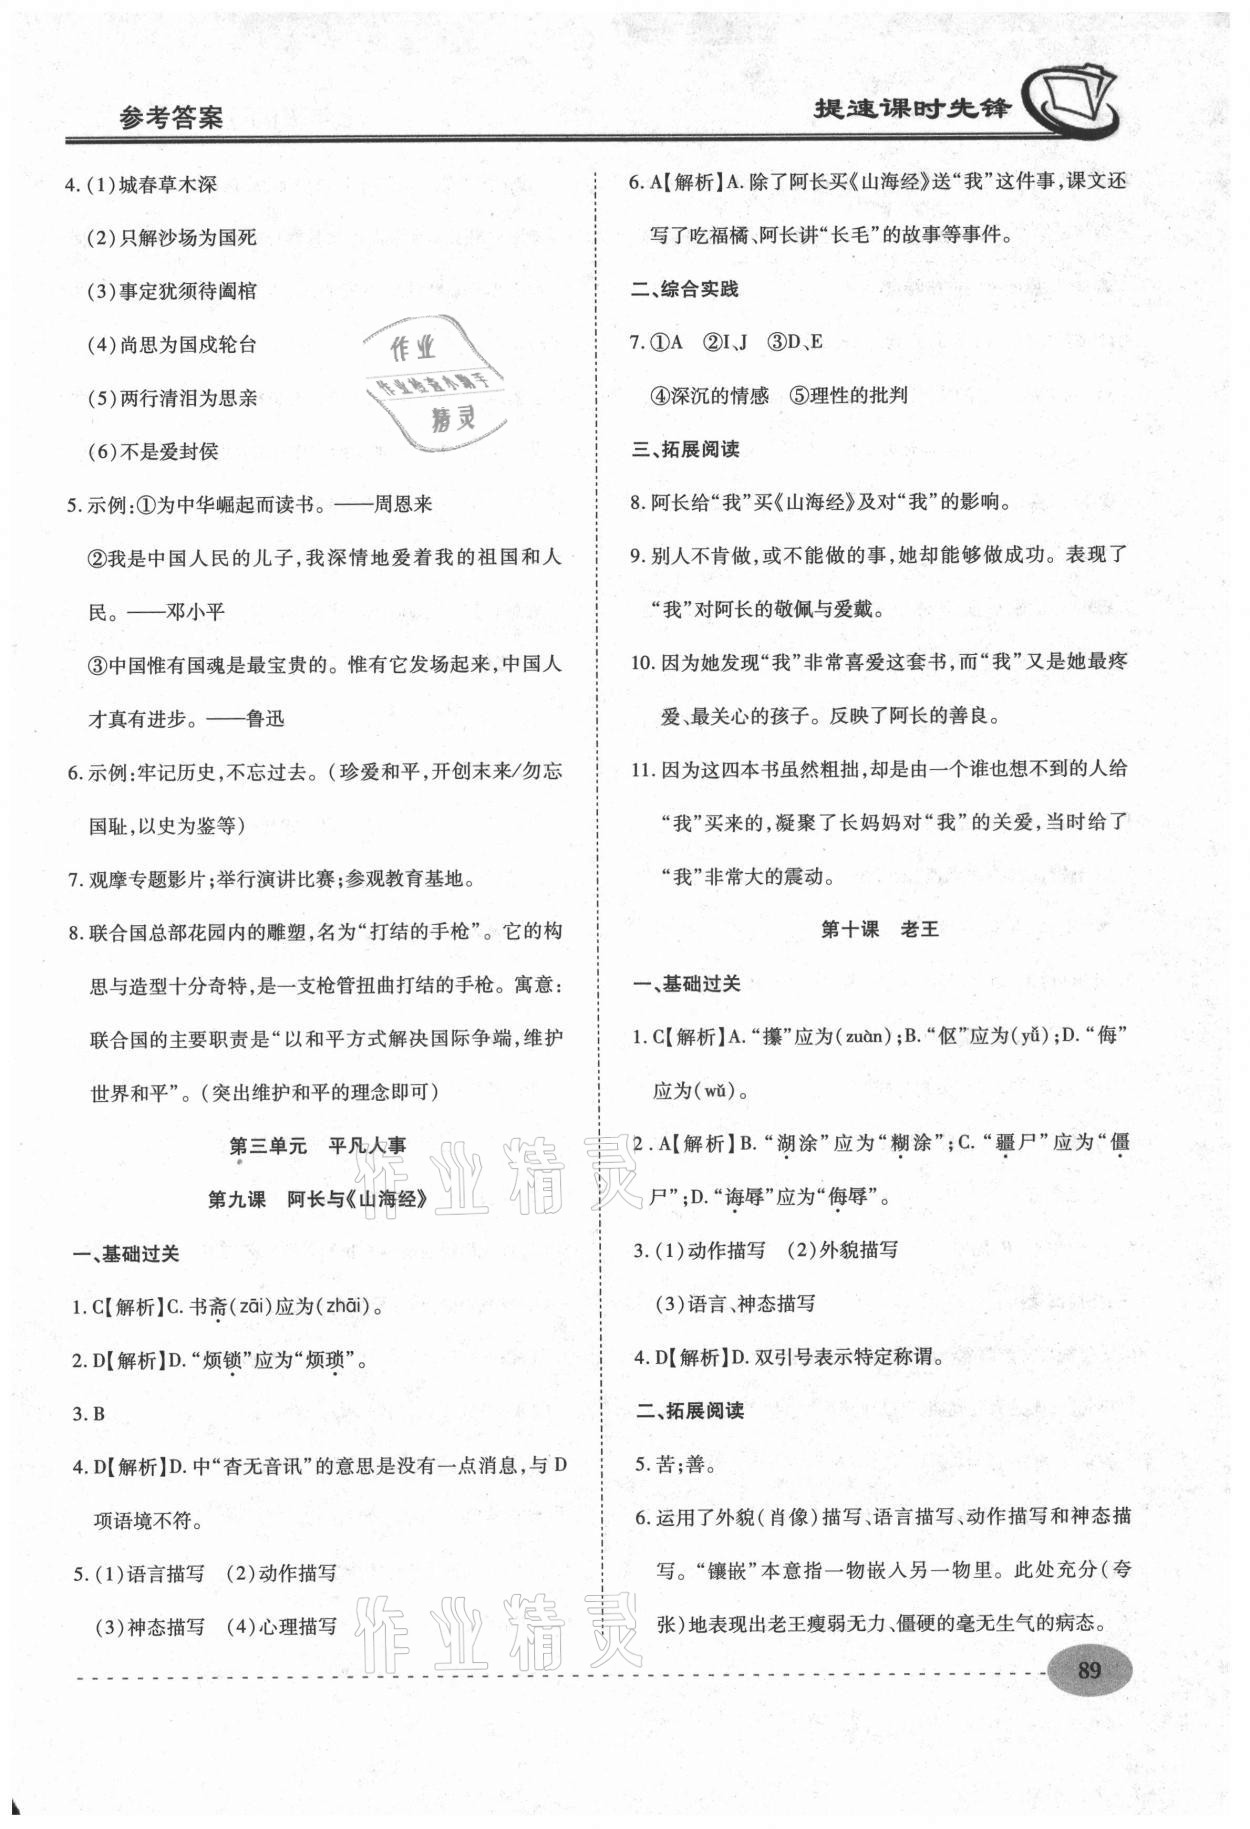 参考答案
提速课时先锋
4. (1)城春草木深
(2)只解沙场为国死
(3)事定犹须待阖棺
(4)尚思为国戍轮台
(5)两行清泪为思亲
(6)不是爱封侯
5. 示例:①为中华崛起而读书。——周恩来
②我是中国人民的儿子,我深情地爱着我的祖国和人
民。——邓小平
③中国惟有国魂是最宝贵的。惟有它发场起来,中国人
才真有进步。——鲁迅
6. 示例:牢记历史,不忘过去。(珍爱和平,开创末来/勿忘
国耻,以史为鉴等)
7. 观摩专题影片;举行演讲比赛;参观教育基地。
8. 联合国总部花园内的雕塑,名为“打结的手枪”。它的构
思与造型十分奇特,是一支枪管扭曲打结的手枪。寓意:
联合国的主要职责是“以和平方式解决国际争端,维护
世界和平”。(突出维护和平的理念即可)
第三单元 平凡人事
第九课 阿长与《山海经》
一、基础过关
1. C【解析】C. 书斋(zāi)应为(zhāi)。
2. D【解析】D. “烦锁”应为“烦琐”。
3. B
4. D【解析】D. 中“杳无音讯”的意思是没有一点消息,与 D
项语境不符。
5. (1)语言描写 (2)动作描写
(3)神态描写 (4)心理描写
6. A【解析】A. 除了阿长买《山海经》送“我”这件事,课文还
写了吃福橘、阿长讲“长毛”的故事等事件。
二、综合实践
7. ①A ②I、J ③D、E
④深沉的情感 ⑤理性的批判
三、拓展阅读
8. 阿长给“我”买《山海经》及对“我”的影响。
9. 别人不肯做,或不能做的事,她却能够做成功。表现了
“我”对阿长的敬佩与爱戴。
10. 因为她发现“我”非常喜爱这套书,而“我”又是她最疼
爱、最关心的孩子。反映了阿长的善良。
11. 因为这四本书虽然粗拙,却是由一个谁也想不到的人给
“我”买来的,凝聚了长妈妈对“我”的关爱,当时给了
“我”非常大的震动。
第十课 老王
一、基础过关
1. C【解析】A. “攥”应为(zuàn);B. “伛”应为(yǔ);D. “侮”
应为(wǔ)。
2. A【解析】B. “湖涂”应为“糊涂”;C. “疆尸”应为“僵
尸”;D. “诲辱”应为“侮辱”。
3. (1)动作描写 (2)外貌描写
(3)语言、神态描写
4. D【解析】D. 双引号表示特定称谓。
二、拓展阅读
5. 苦;善。
6. 运用了外貌(肖像)描写、语言描写、动作描写和神态描
写。“镶嵌”本意指一物嵌人另一物里。此处充分(夸
张)地表现出老王瘦弱无力、僵硬的毫无生气的病态。
89
作业
作业检查小助手
精灵
作业精灵
作业精灵